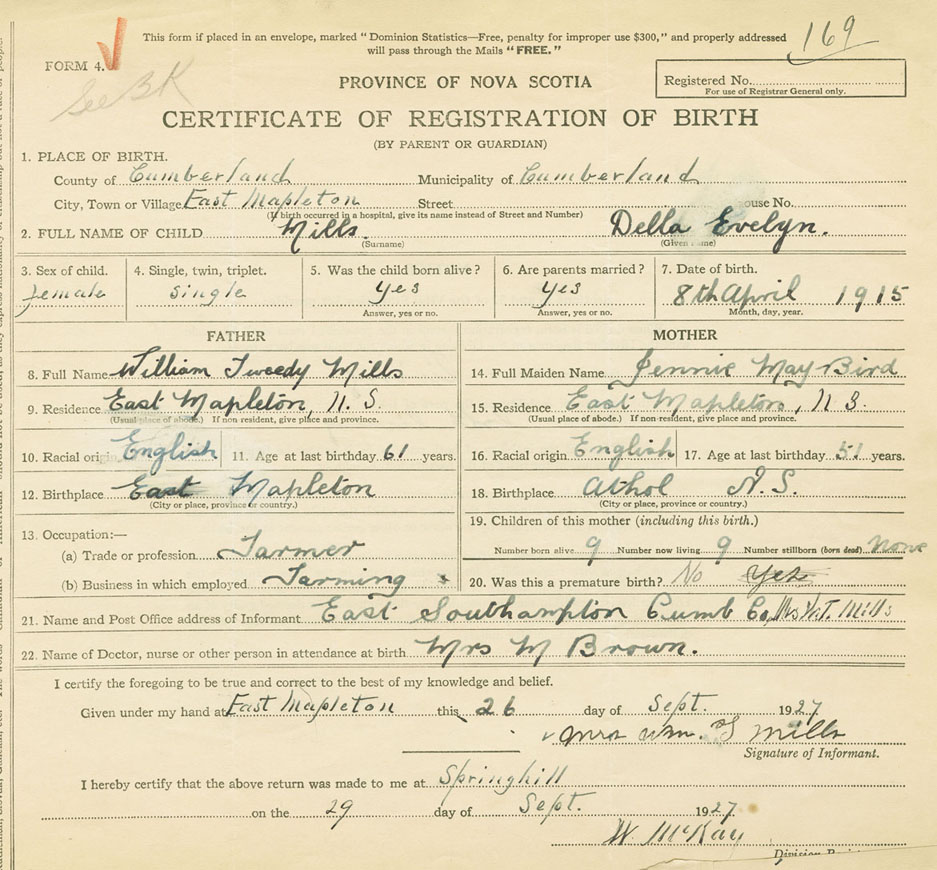 This form if placed in an envelope, marked "Dominion Statistics—Free, penalty for improper use $300," and properly addressed
will pass through the Mails "FREE."
169
FORM 4.
See BK
PROVINCE OF NOVA SCOTIA
Registered No.
For use of Registrar General only.
CERTIFICATE OF REGISTRATION OF BIRTH
(BY PARENT OR GUARDIAN)
1. PLACE OF BIRTH.
County of Cumberland Municipality of Cumberland
City, Town or Village East Mapleton Street ouse No.
(If birth occurred in a hospital, give its name instead of Street and Number)
2. FULL NAME OF CHILD Mills. Della Evelyn.
(Surname) (Given name)
3. Sex of child. 4. Single, twin, triplet. 5. Was the child born alive? 6. Are parents married? 7. Date of birth.
female single yes yes 8th April 1915
Answer, yes or no. Answer, yes or no. Month, day, year.
FATHER MOTHER
8. Full Name William Tweedy Mills 14. Full Maiden Name Jennie May Bird
9. Residence East Mapleton, N. S. 15. Residence East Mapleton, N S.
(Usual place of abode.) If non-resident, give place and province. (Usual place of abode.) If non-resident, give place and province.
10. Racial origin English 11. Age at last birthday 61 years. 16. Racial origin English 17. Age at last birthday 51 years.
12. Birthplace East Mapleton 18. Birthplace Athol N.S.
(City or place, province or country.) (City or place, province or country.)
13. Occupation:— 19. Children of this mother (including this birth.)
(a) Trade or profession Farmer Number born alive 9 Number now living 9 Number stillborn (born dead) None
(b) Business in which employed Farming 20. Was this a premature birth? No Yes
21. Name and Post Office address of Informant East Southampton Cumb Co, Mrs W.T. Mills
22. Name of Doctor, nurse or other person in attendance at birth Mrs M Brown.
I certify the foregoing to be true and correct to the best of my knowledge and belief.
Given under my hand at East Mapleton this 26 day of Sept. 1927
Mrs Wm. T Mills
Signature of Informant.
I hereby certify that the above return was made to me at Springhill
on the 29 day of Sept. 1927
W. McKay
Division